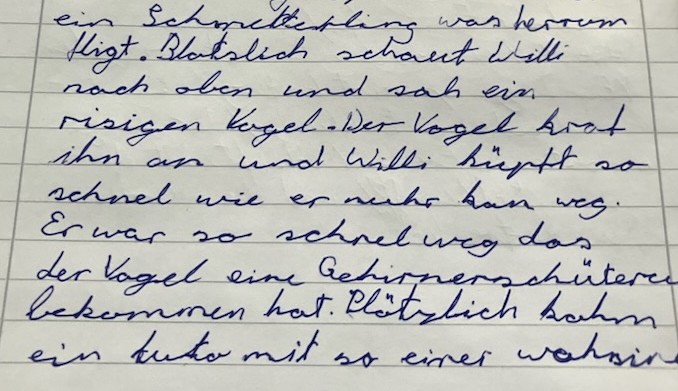 ein Schmetterling was herrum
fligt. Blotslich schaut Willi
nach oben und sah ein
risigen Vogel. Der Vogel krat
ihn an und Willi hüpft so
schnel wie er nuhr kan weg.
Er war so schnel weg das
der Vogel eine Gehirnerschütere
bekommen hat. Plötzlich kahm
ein Auto mit so einer wahnsin